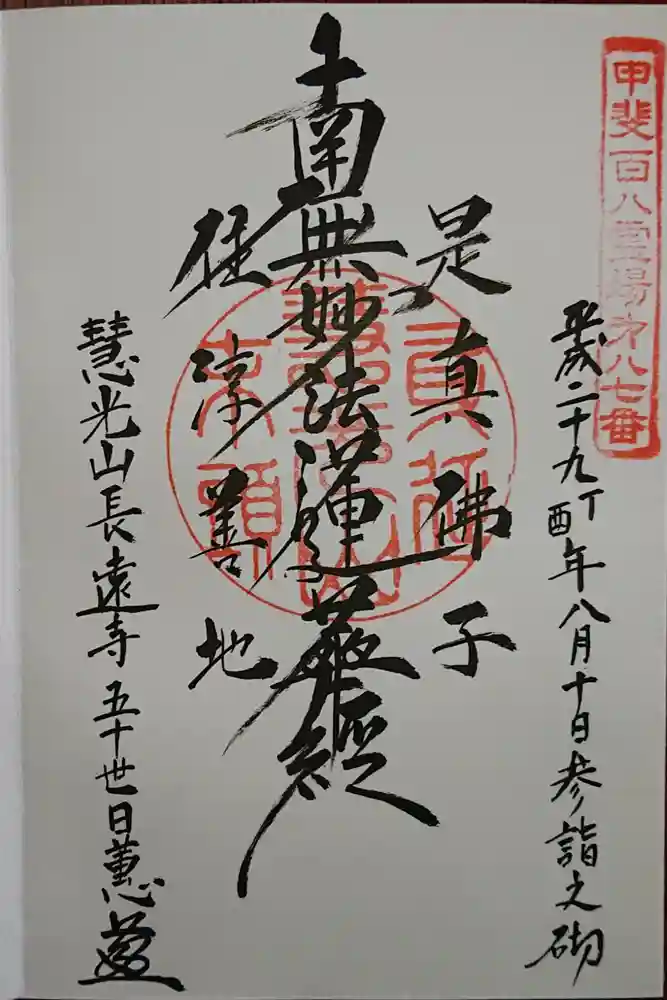 甲斐百八霊場第八七番
平成二十九丁酉年八月十日参詣之砌
是真佛子
南無妙法蓮華経
住淳善地
慧光山長遠寺五十世日蕙